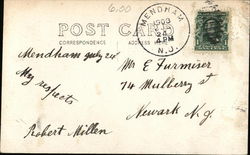 6.00
POST CARD
CORRESPONDENCE
ADDRESS
MENDHAM
1908
24
4 PM
N.J.
Mendham July 24
My respects
Robert Millen
Mr E Furmiser
74 Mulberry st
Newark N.J.